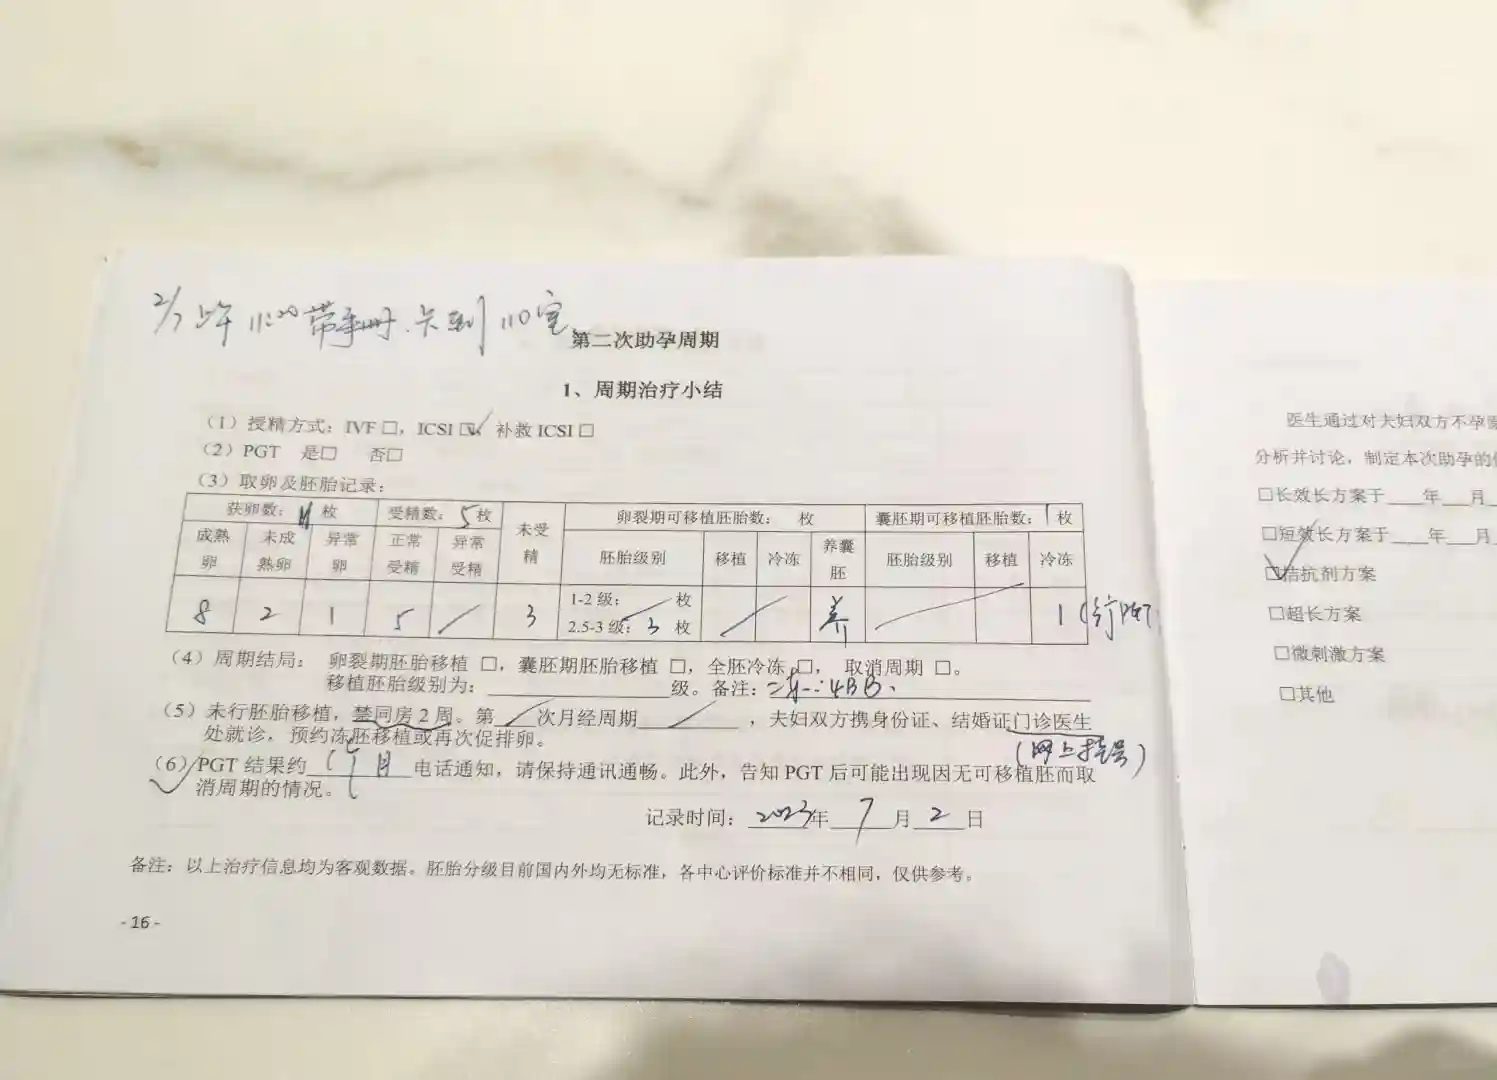 2/7 上午 11:00 带手册.卡到110室
第二次助孕周期
1、周期治疗小结
（1）授精方式：IVF □，ICSI ☑ 补救 ICSI □
（2）PGT 是□ 否□
（3）取卵及胚胎记录：
获卵数：11 枚 受精数：5 枚 未受精 卵裂期可移植胚胎数： 枚 囊胚期可移植胚胎数：1 枚
成熟卵 未成熟卵 异常卵 正常受精 异常受精 胚胎级别 移植 冷冻 养囊胚 胚胎级别 移植 冷冻
8 2 1 5 / 3 1-2 级： / 枚 / 养 / 1（行PGT
2.5-3 级：3 枚
（4）周期结局： 卵裂期胚胎移植 □，囊胚期胚胎移植 □，全胚冷冻 □， 取消周期 □。
移植胚胎级别为： 级。备注： 4BB.
（5）未行胚胎移植，禁同房 2 周。第 / 次月经周期 / ，夫妇双方携身份证、结婚证门诊医生
处就诊，预约冻胚移植或再次促排卵。
（网上挂号）
（6）PGT 结果约 1个月 电话通知，请保持通讯通畅。此外，告知 PGT 后可能出现因无可移植胚而取
消周期的情况。
记录时间： 2023 年 7 月 2 日
备注：以上治疗信息均为客观数据。胚胎分级目前国内外均无标准，各中心评价标准并不相同，仅供参考。
- 16 -
医生通过对夫妇双方不孕
分析并讨论，制定本次助孕的
□长效长方案于 年 月
□短效长方案于 年 月
☑拮抗剂方案
□超长方案
□微刺激方案
□其他